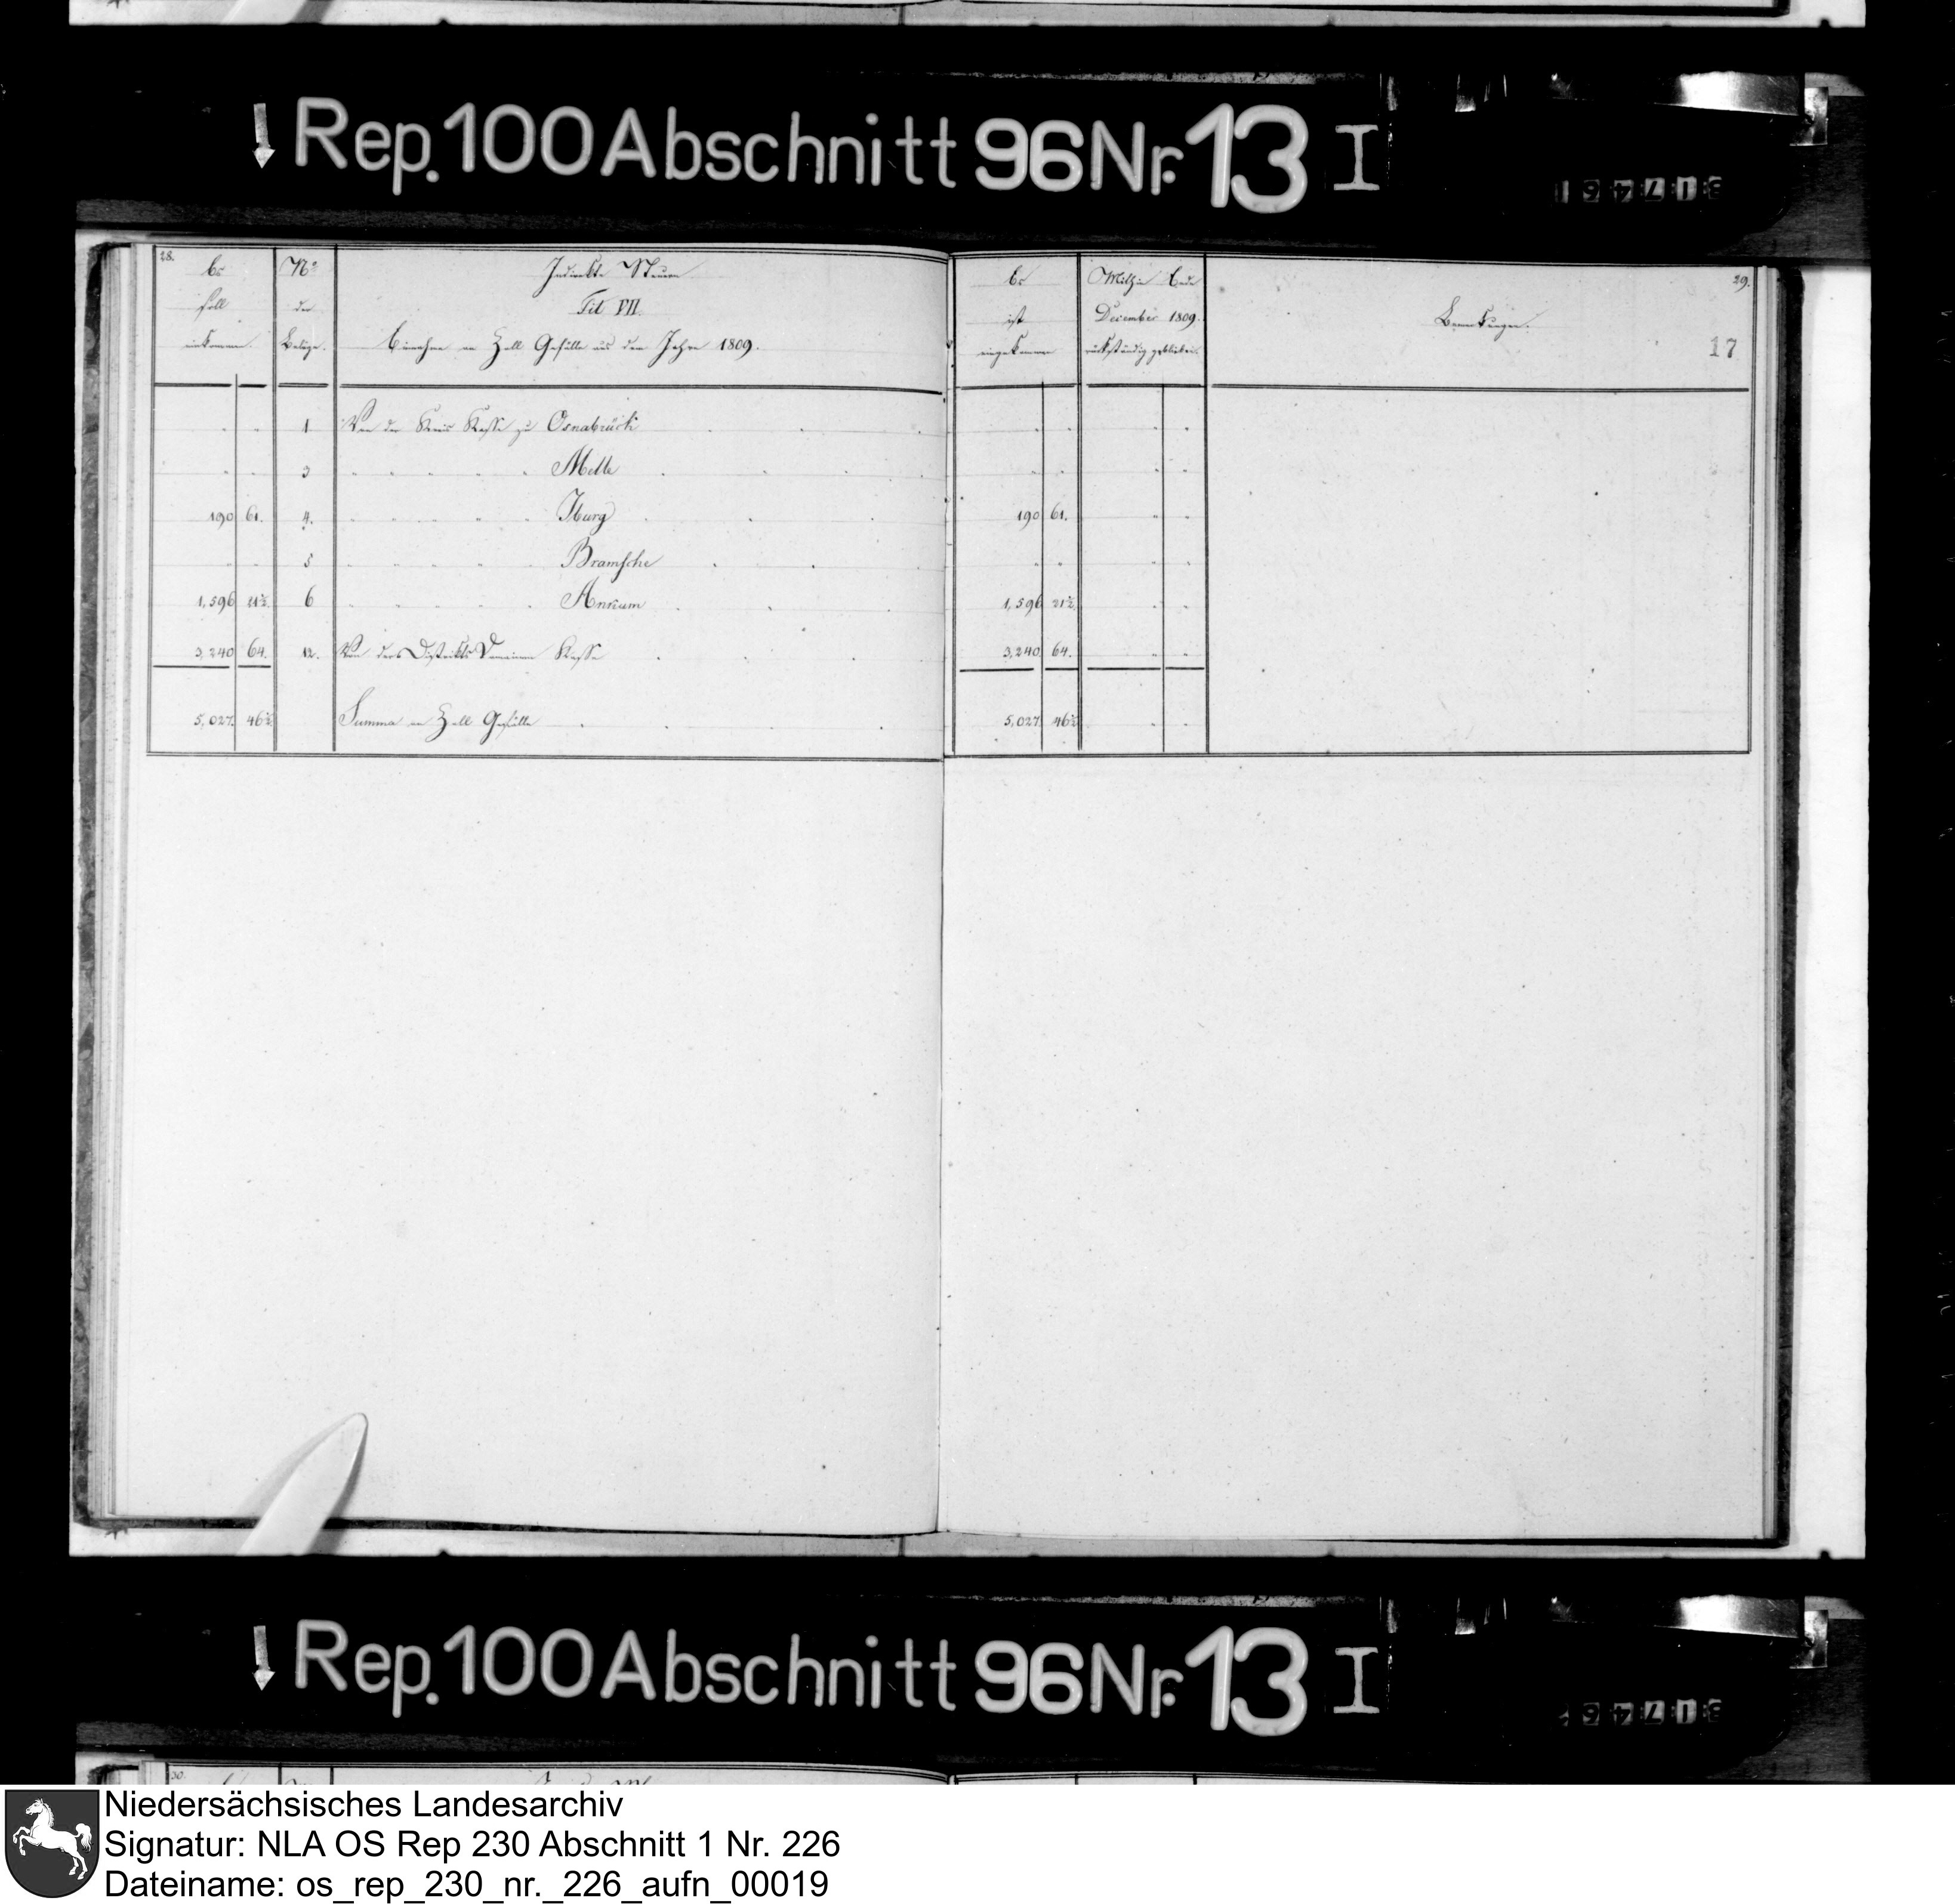 Rep. 100 Abschnitt 96 Nr. 13 I
28.
Es
soll
einkomen.
No
der
Beläge.
Indirekte Steuern
Tit VII.
Einnahme an Zoll Gefälle aus dem Jahre 1809.
Es
ist
eingekomen
Mithin Ende
December 1809.
rückständig geblieben.
Bemerkungen.
29.
17
1. Von der Kreis Kasse zu Osnabrück
3 Melle
190 61. 4. Iburg 190 61.
5 Bramsche
1,596 21½ 6 Ankum 1,596 21½
3,240 64. 12. Von der Distrikts Domainen Kasse 3,240 64.
5,027. 46½ Summa an Zoll Gefälle 5,027. 46½
Rep. 100 Abschnitt 96 Nr. 13 I
30.
Niedersächsisches Landesarchiv
Signatur: NLA OS Rep 230 Abschnitt 1 Nr. 226
Dateiname: os_rep_230_nr._226_aufn_00019